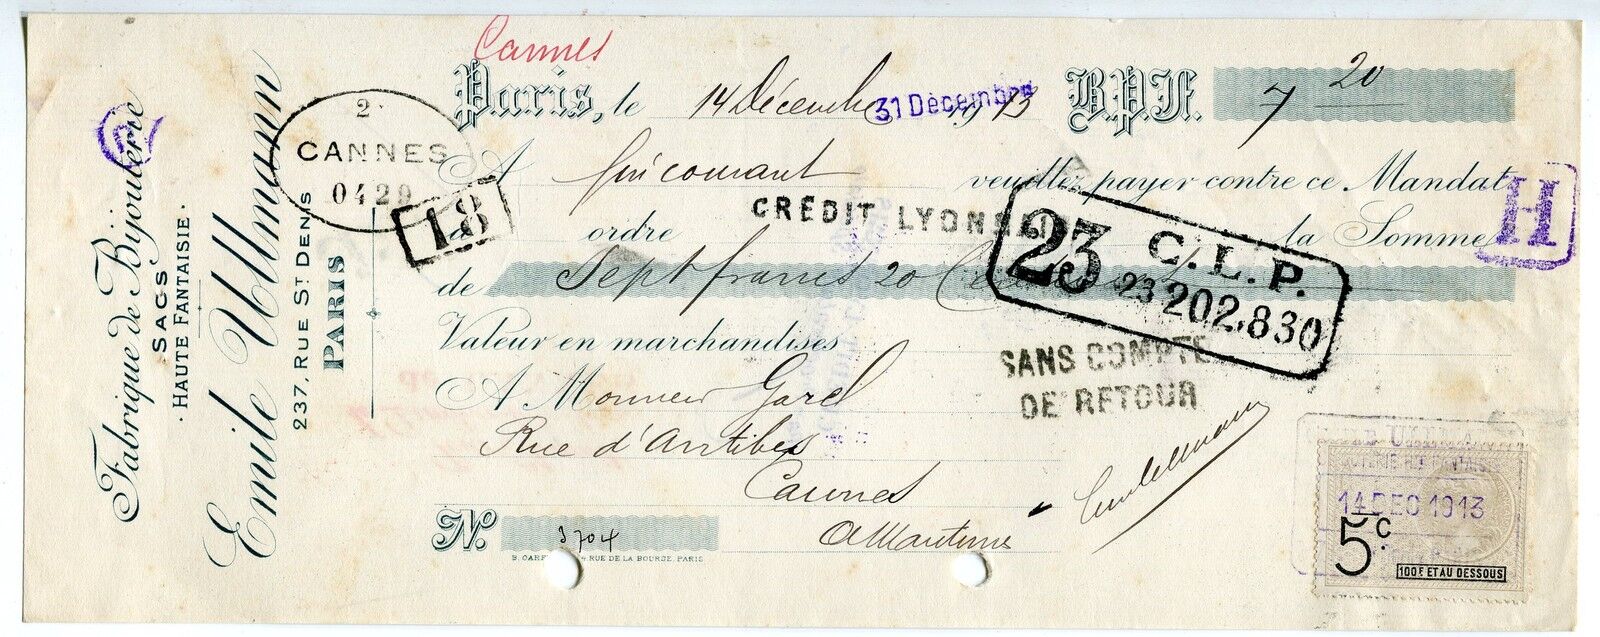 Fabrique de Bijouterie
SACS
· HAUTE FANTAISIE ·
Emile Ullmann
237, RUE ST DENIS
PARIS
Cannes
Paris, le 14 Décembre 1913 B.P.F. 7 20
31 Décembre
2
CANNES
0429
18
A fin courant veuillez payer contre ce Mandat
H
à ordre CREDIT LYONNAIS la Somme
23 C.L.P.
23 202.830
de Sept francs 20 Centimes
Valeur en marchandises
SANS COMPTE
DE RETOUR
A Monsieur Garel
Rue d'Antibes
Cannes
A Maritimes
Emile Ullmann
No. 3704
RUE DE LA BOURSE, PARIS
14 DEC 1913
5c.
100 F. ET AU DESSOUS